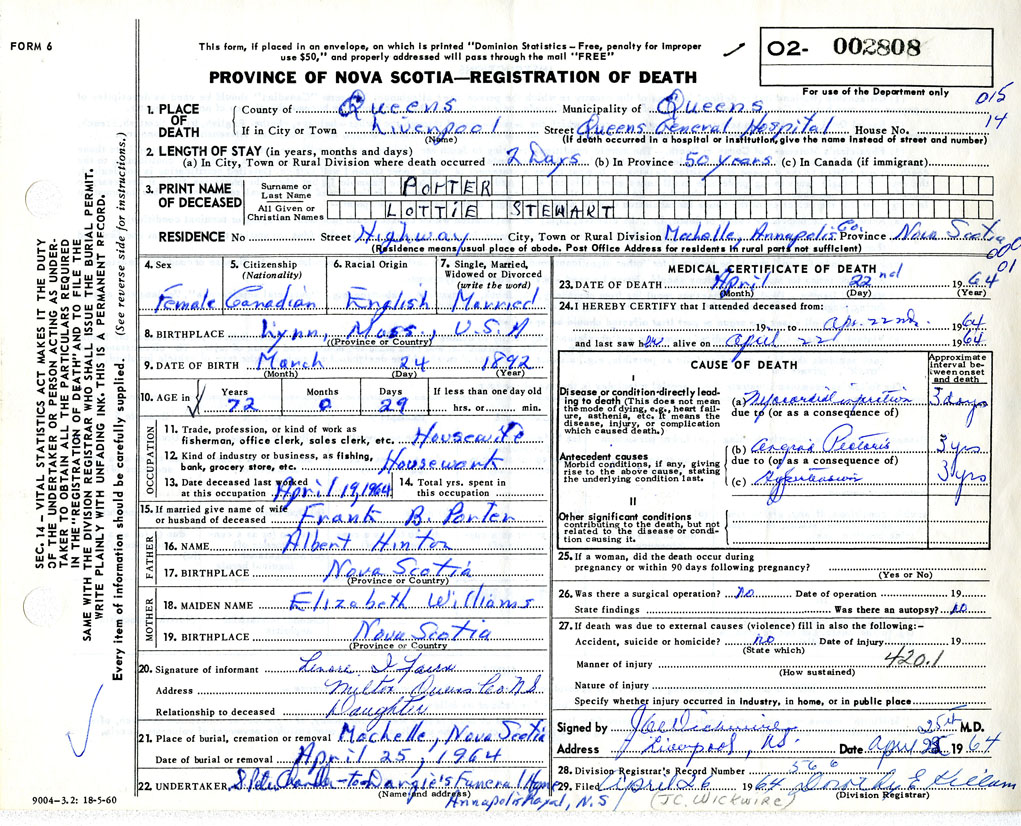 FORM 6
This form, if placed in an envelope, on which is printed "Dominion Statistics – Free, penalty for improper
use $50," and properly addressed will pass through the mail "FREE"
PROVINCE OF NOVA SCOTIA—REGISTRATION OF DEATH
02- 002808
For use of the Department only
015
14
1. PLACE OF DEATH
County of Queens Municipality of Queens
If in City or Town Liverpool Street Queens General Hospital House No.
(Name) (If death occurred in a hospital or institution, give the name instead of street and number)
2. LENGTH OF STAY (in years, months and days)
(a) In City, Town or Rural Division where death occurred 2 Days (b) In Province 50 years (c) In Canada (if immigrant)
3. PRINT NAME OF DECEASED
Surname or Last Name PORTER
All Given or Christian Names LOTTIE STEWART
RESIDENCE No Street Highway City, Town or Rural Division Mochelle, Annapolis Co. Province Nova Scotia
(Residence means usual place of abode. Post Office Address for residents in rural parts not sufficient)
01
4. Sex Female
5. Citizenship (Nationality) Canadian
6. Racial Origin English
7. Single, Married, Widowed or Divorced (write the word) Married
8. BIRTHPLACE Lynn, Mass, U.S.A
(Province or Country)
9. DATE OF BIRTH March 24 1892
(Month) (Day) (Year)
10. AGE in Years 72 Months 0 Days 29 If less than one day old hrs. or min.
OCCUPATION
11. Trade, profession, or kind of work as
fisherman, office clerk, sales clerk, etc. Housewife
12. Kind of industry or business, as fishing,
bank, grocery store, etc. Housework
13. Date deceased last worked
at this occupation April 19, 1964
14. Total yrs. spent in
this occupation
15. If married give name of wife
or husband of deceased Frank B. Porter
FATHER
16. NAME Albert Hinton
17. BIRTHPLACE Nova Scotia
(Province or Country)
MOTHER
18. MAIDEN NAME Elizabeth Williams
19. BIRTHPLACE Nova Scotia
(Province or Country
20. Signature of informant
Address Milton Queens Co N.S.
Relationship to deceased Daughter
21. Place of burial, cremation or removal Mochelle, Nova Scotia
Date of burial or removal April 25, 1964
22. UNDERTAKER Dargie's Funeral Home
(Name and address)
Annapolis Royal, N.S
9004–3.2: 18-5-60
MEDICAL CERTIFICATE OF DEATH
23. DATE OF DEATH April 22nd 1964
(Month) (Day) (Year)
24. I HEREBY CERTIFY that I attended deceased from:
19 to Apr. 22nd 1964
and last saw her alive on April 22 1964
CAUSE OF DEATH
Approximate interval between onset and death
I
Disease or condition directly leading to death (This does not mean the mode of dying, e.g., heart failure, asthenia, etc. It means the disease, injury, or complication which caused death.)
(a) Myocardial infarction 3 days
due to (or as a consequence of)
Antecedent causes
Morbid conditions, if any, giving rise to the above cause, stating the underlying condition last.
(b) Angina Pectoris 3 yrs
due to (or as a consequence of)
(c) Hypertension 3 yrs
II
Other significant conditions
contributing to the death, but not related to the disease or condition causing it.
25. If a woman, did the death occur during
pregnancy or within 90 days following pregnancy?
(Yes or No)
26. Was there a surgical operation? no Date of operation 19
State findings Was there an autopsy? no
27. If death was due to external causes (violence) fill in also the following:–
Accident, suicide or homicide? no Date of injury 19
(State which)
Manner of injury 420.1
(How sustained)
Nature of injury
Specify whether injury occurred in industry, in home, or in public place
Signed by J C Wickwire M.D.
Address Liverpool, N.S. Date April 1964
28. Division Registrar's Record Number 566
29. Filed April 26 1964 Dorothy E Killam
(J.C. WICKWIRE) (Division Registrar)
SEC. 14 – VITAL STATISTICS ACT MAKES IT THE DUTY
OF THE UNDERTAKER OR PERSON ACTING AS UNDER-
TAKER TO OBTAIN ALL THE PARTICULARS REQUIRED
IN THE "REGISTRATION OF DEATH" AND TO FILE THE
SAME WITH THE DIVISION REGISTRAR WHO SHALL ISSUE THE BURIAL PERMIT.
WRITE PLAINLY WITH UNFADING INK. THIS IS A PERMANENT RECORD.
Every item of information should be carefully supplied. (See reverse side for instructions.)